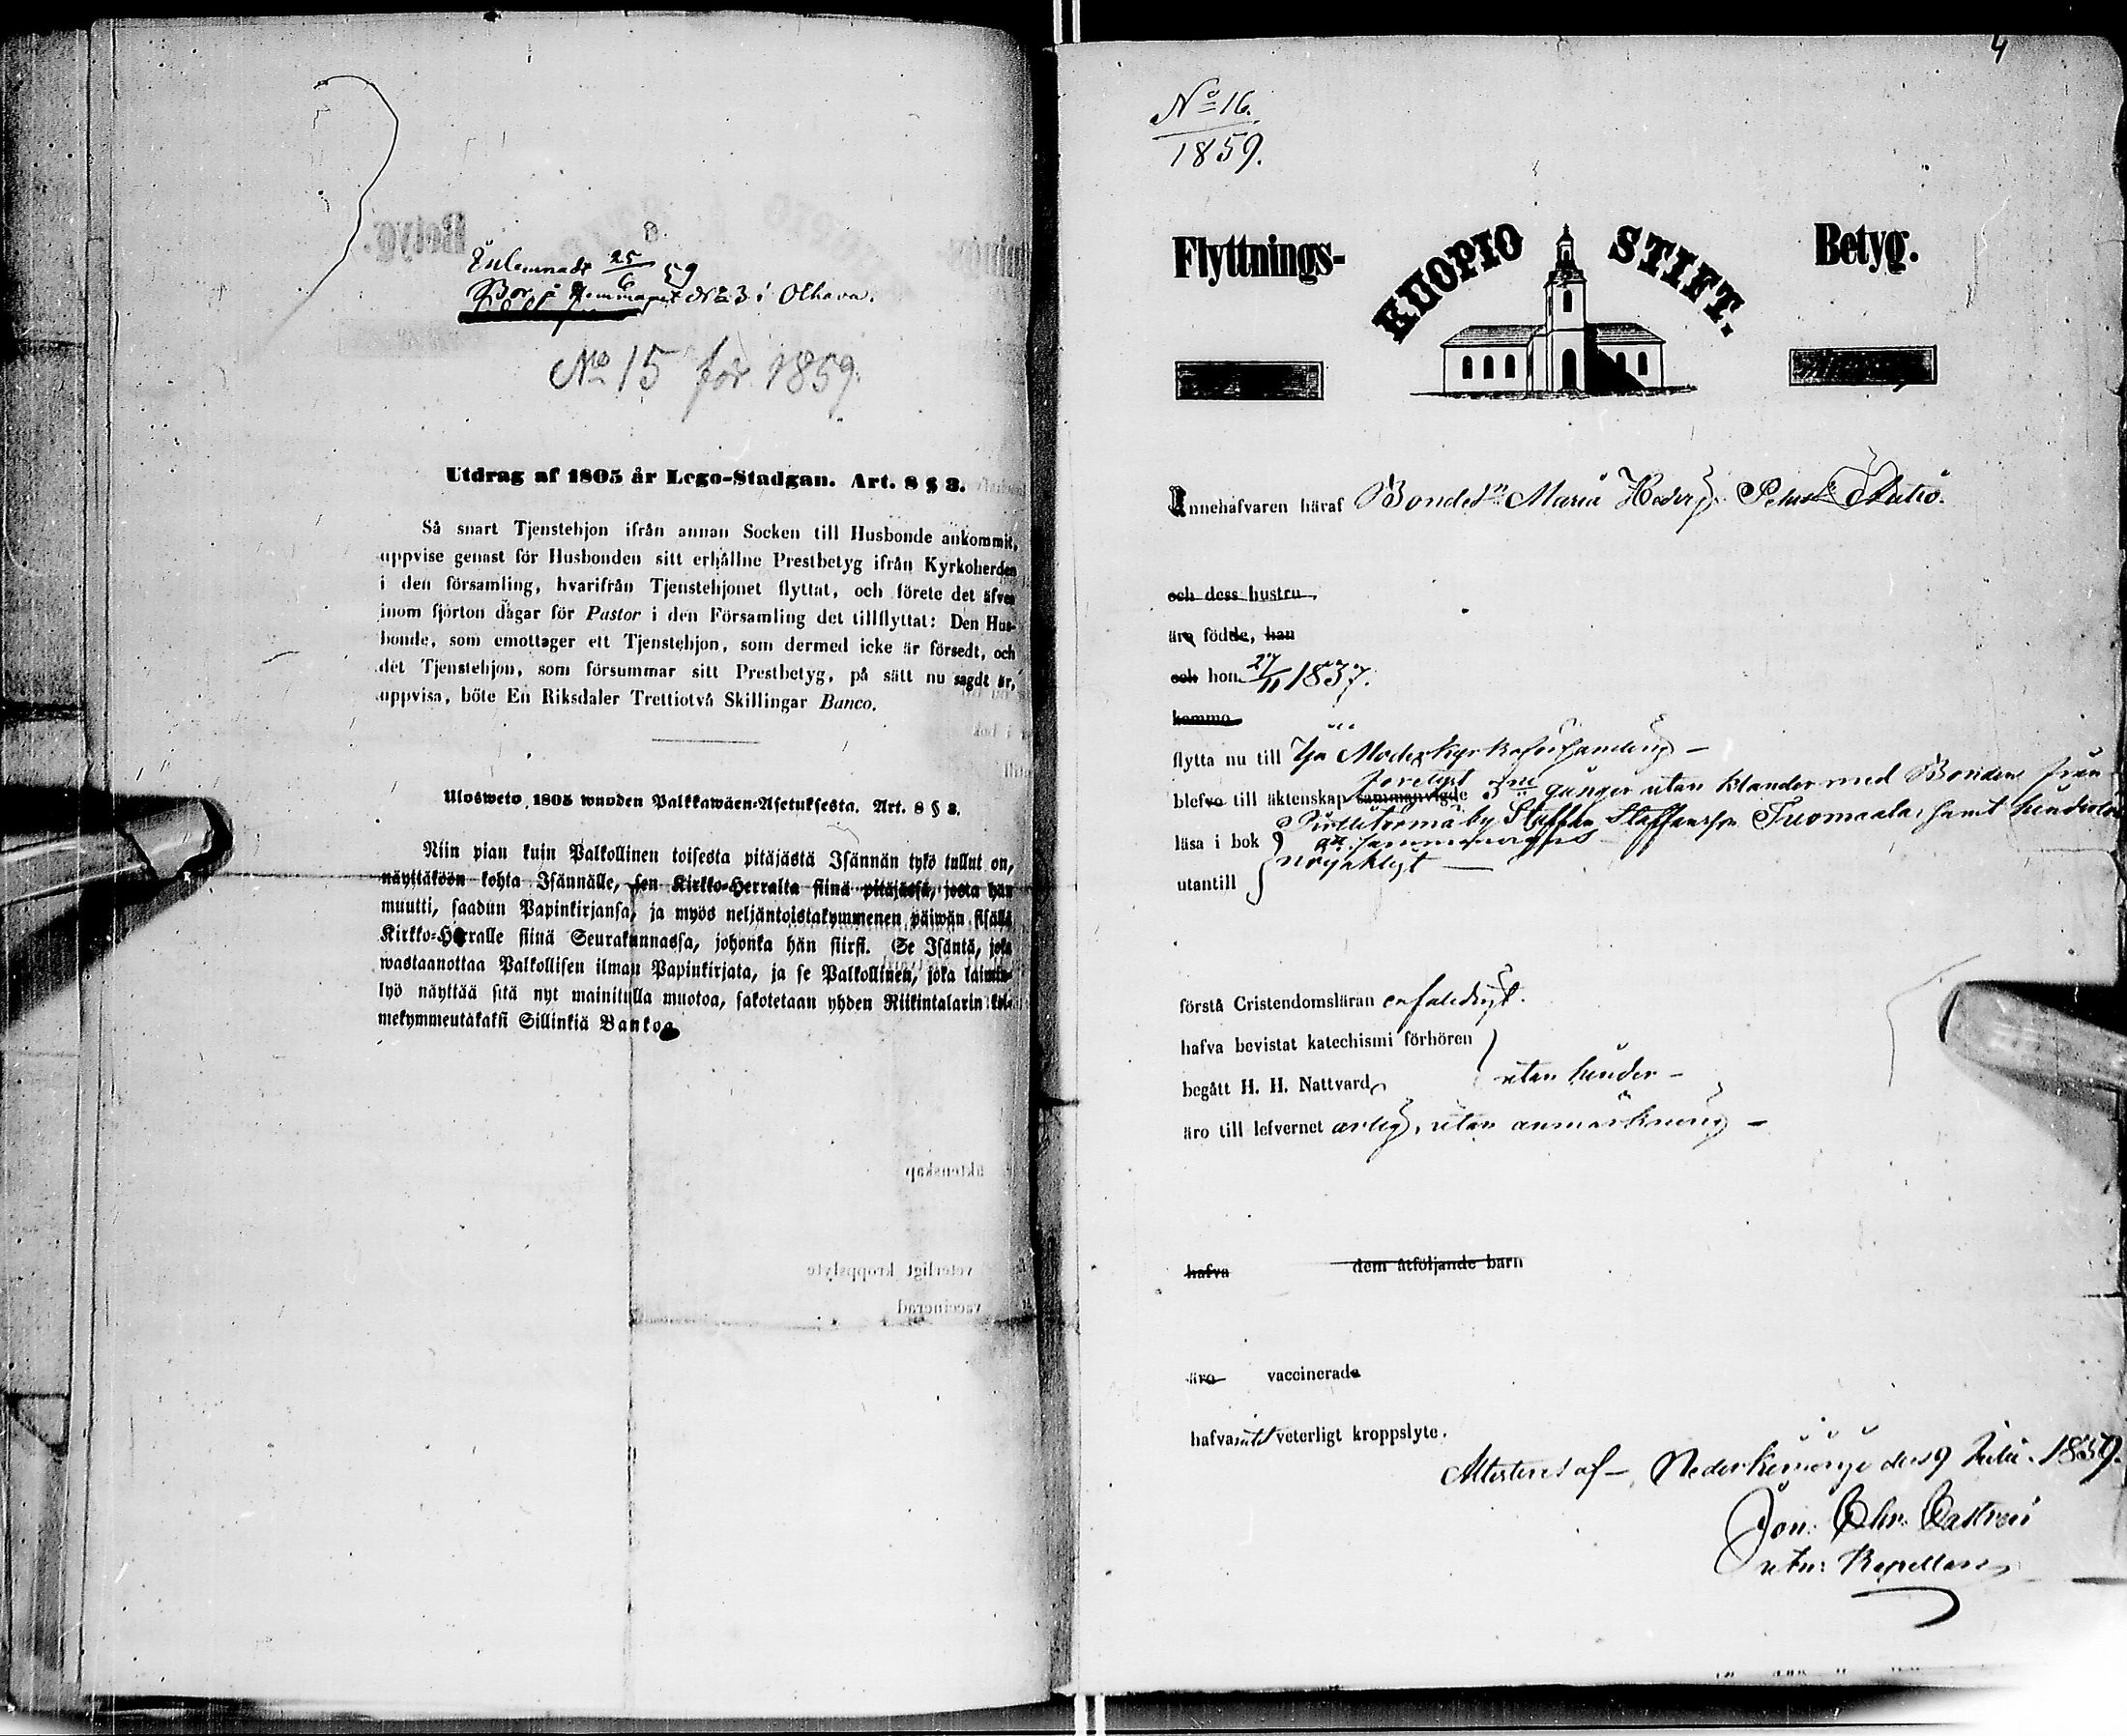 Inlemnadt 25/6 59
Bor på Hemmanet No 3 i Olhava.
No 15 för 1859.
Utdrag af 1805 år Lego-Stadgan. Art. 8 § 3.
Så snart Tjenstehjon ifrån annan Socken till Husbonde ankommit,
uppvise genast för Husbonden sitt erhållne Prestbetyg ifrån Kyrkoherden
i den församling, hvarifrån Tjenstehjonet flyttat, och förete det äfven
inom fjorton dagar för Pastor i den Församling det tillflyttat: Den Hus-
bonde, som emottager ett Tjenstehjon, som dermed icke är försedt, och
det Tjenstehjon, som försummar sitt Prestbetyg, på sätt nu sagdt är,
uppvisa, böte En Riksdaler Trettiotvå Skillingar Banco.
Ulosweto 1805 wuoden Palkkawäen-Asetuksesta. Art. 8 § 3.
Niin pian kuin Palkollinen toisesta pitäjästä Isännän tykö tullut on,
näyttäköön kohta Isännälle, sen Kirkko-Herralta siinä pitäjässä, josta hän
muutti, saadun Papinkirjansa, ja myös neljäntoistakymmenen päiwän sisällä
Kirkko-Herralle siinä Seurakunnassa, johonka hän siirsi. Se Isäntä, joka
wastaanottaa Palkollisen ilman Papinkirjata, ja se Palkollinen, joka laimin-
lyö näyttää sitä nyt mainitulla muotoa, sakotetaan yhden Riikintalarin kol-
mekymmentäkaksi Sillinkiä Bankoa
4
No 16.
1859.
Flyttnings- KUOPIO STIFT. Betyg.
Innehafvaren häraf Bonded:n Maria Hedvig Petersdr
och dess hustru,
äro födde, han
och hon 27/11 1837.
komma
flytta nu till Ijo Moderkyrkoförsamling –
blefvo till äktenskap sammanvigde förelyst 3ne gånger utan klander med Bonden från
by Staffan Staffansson Tuomaala, samt
läsa i bok
utantill nöjaktigt –
förstå Cristendomsläran enfaldigt.
hafva bevistat katechismi förhören
begått H. H. Nattvard utan hinder –
äro till lefvernet ärlig, utan anmärkning –
hafva dem åtföljande barn
äro vaccinerade
hafva intet veterligt kroppslyte.
Attesteras af – Nederkiminge den 9 Juni 1859.
Jon. Chr. Castrén
Kapellan